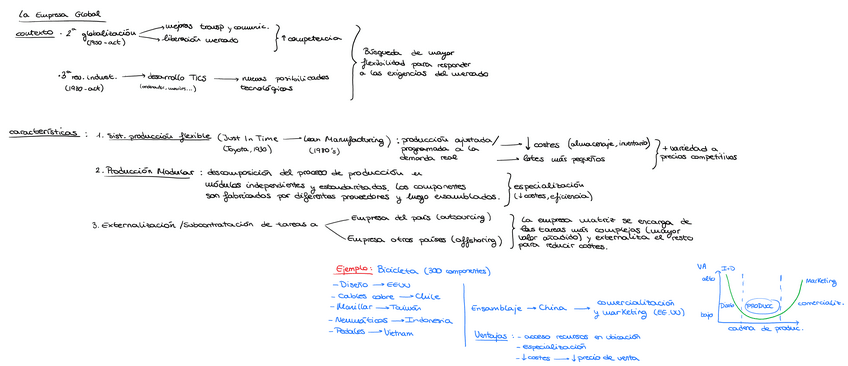 La Empresa Global
contexto · 2ª globalización → mejoras transp y comunic.
(1980-act) → liberación mercado
↑ competencia
· 3ª rev. indust. → desarrollo TICS → nuevas posibilidades
(1980-act) tecnológicas
Búsqueda de mayor
flexibilidad para responder
a las exigencias del mercado
características : 1. Sist. producción flexible (Just In Time → Lean Manufacturing) : producción ajustada/
(Toyota, 1930) (1980's) programada a la
demanda real
→ ↓ costes (almacenaje, inventario)
→ lotes más pequeños
+ variedad a
precios competitivos
2. Producción Modular : descomposición del proceso de producción en
módulos independientes y estandarizados. Los componentes
son fabricados por diferentes proveedores y luego ensamblados.
especialización
(↓costes, eficiencia)
3. Externalización /Subcontratación de tareas a
Empresa del país (outsourcing)
Empresa otros países (offshoring)
La empresa matriz se encarga de
las tareas más complejas (mayor
valor añadido) y externaliza el resto
para reducir costes.
Ejemplo: Bicicleta (300 componentes)
- Diseño → EEUU
- Cables cobre → Chile
- Manillar → Taiwán
- Neumáticos → Indonesia
- Pedales → Vietnam
Ensamblaje → China → comercialización
y marketing (EE.UU)
Ventajas : - acceso recursos en ubicación
- especialización
- ↓costes → ↓precio de venta
VA I+D
alto Marketing
Diseño PRODUCC comercializ.
bajo
cadena de produc.